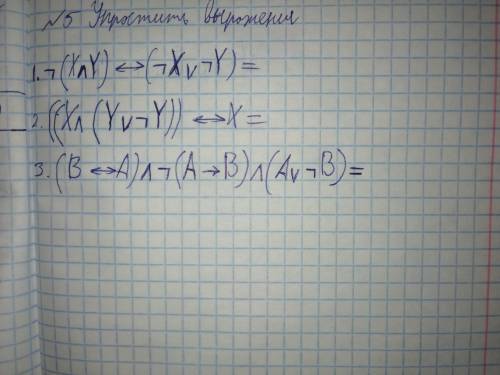 №5 Упростить выражения
1. ¬(X∧Y)↔(¬X∨¬Y)=
2. ((X∧(Y∨¬Y))↔X=
3. (B↔A)∧¬(A→B)∧(A∨¬B)=